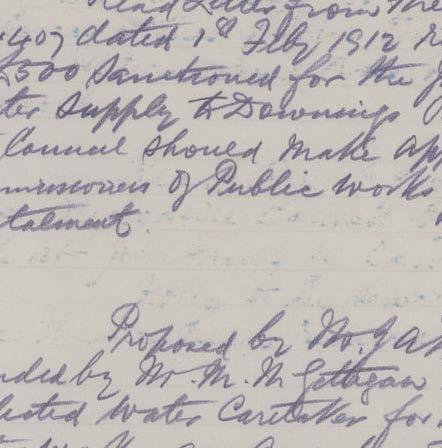 Read Letter from the
407 dated 1st Feby 1912 r
£500 Sanctioned for the
ter Supply to Downings
Council should make app
missioners of Public Works
stalment.
Proposed by Mr. J
nded by Mr. M. McGettigan
lected Water Caretaker for